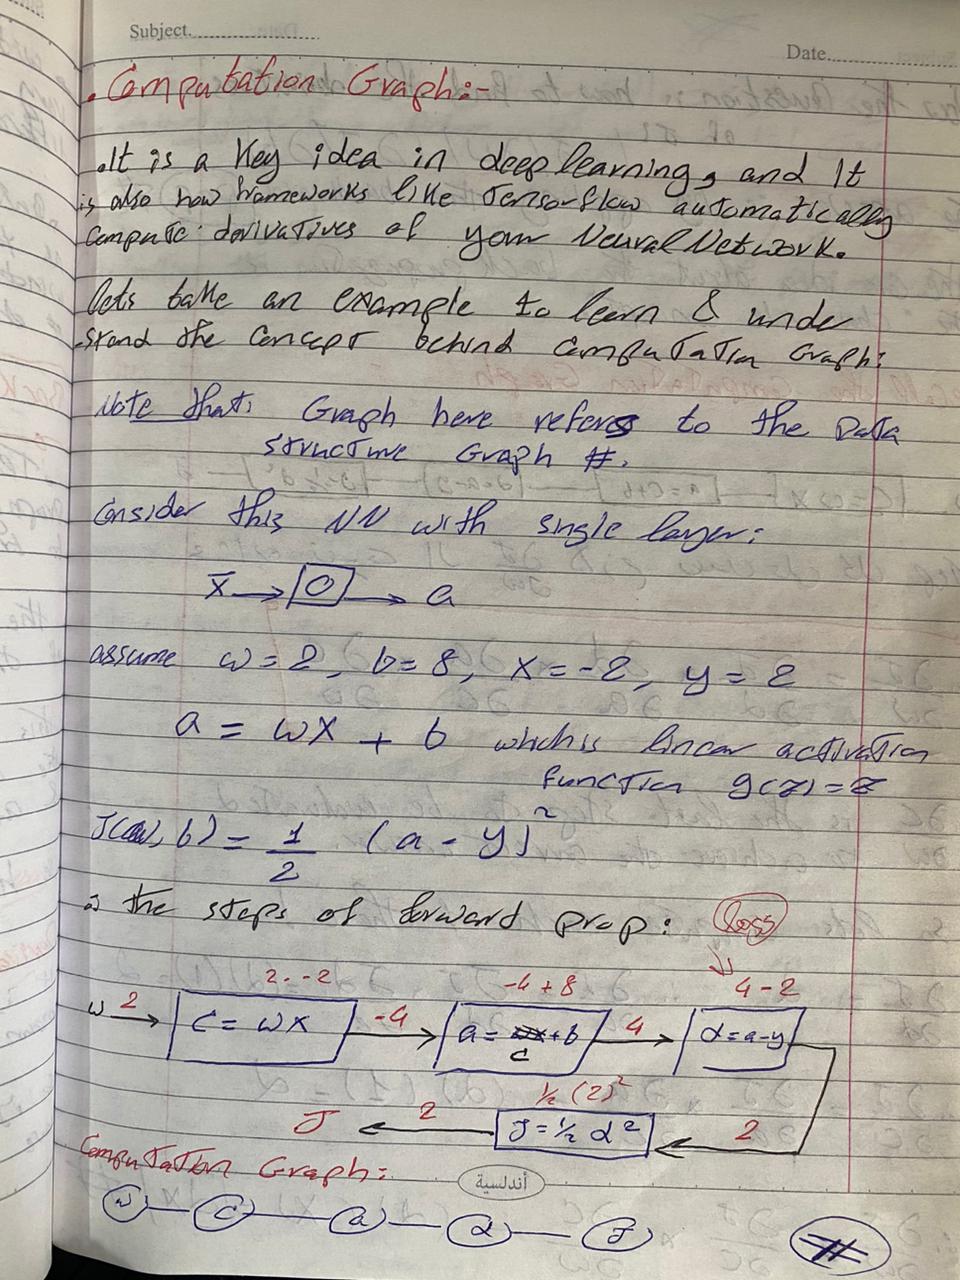 Subject.
Date.
. Computation Graph:-
. It is a key idea in deep learning, and It
is also how frameworks like Tensorflow automatically
compute derivatives of your Neural Network.
lets take an example to learn & unde
-stand the concept behind Computation Graph:
Note that: Graph here refers to the Data
structure Graph #.
Consider this NN with single layer:
x̄ → O → a
assume w = 2, b = 8, x = -2, y = 2
a = wx + b which is linear activation
function g(z) = z
J(w, b) = 1/2 (a - y)²
∴ the steps of forward prop: loss
2 . -2 -4 + 8 4 - 2
w 2 → C = wx -4 → a = c + b 4 → d = a - y
½ (2)²
J ← 2 J = ½ d² ← 2
Computation Graph:
أندلسية
w — c — a — d — J #